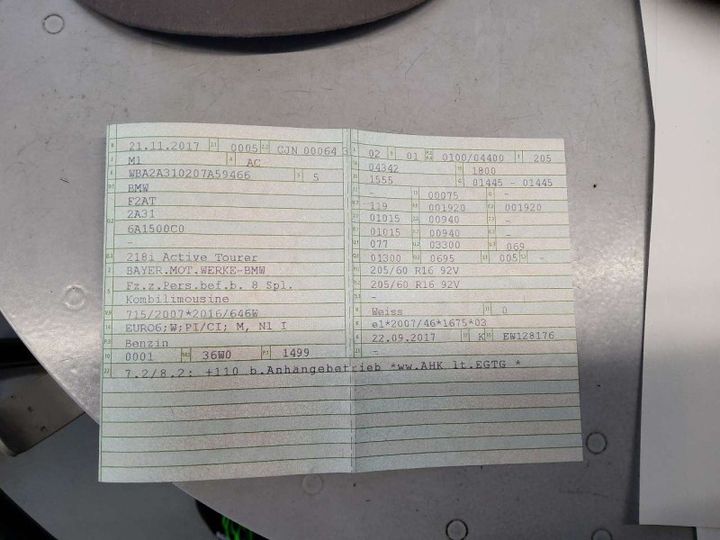 21.11.2017 0005 CJN 00064 3
M1 AC
WBA2A310207A59466 5
BMW
F2AT
2A31
6A1500C0
-
218i Active Tourer
BAYER.MOT.WERKE-BMW
Fz.z.Pers.bef.b. 8 Spl.
Kombilimousine
715/2007*2016/646W
EURO6;W;PI/CI; M, N1 I
Benzin
0001 36W0 1499
7.2/8.2: +110 b.Anhängebetrieb *ww.AHK lt.EGTG *
02 01 0100/04400 205
04342 1800
1555 01445 - 01445
- 00075 -
119 001920 001920
01015 00940 -
01015 00940 -
077 03300 069
01300 0695 005 -
205/60 R16 92V
205/60 R16 92V
-
Weiss 0
e1*2007/46*1675*03
22.09.2017 K EW128176
-